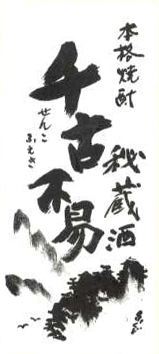 本格焼酎
千古不易
せんこ
ふえき
秘蔵酒